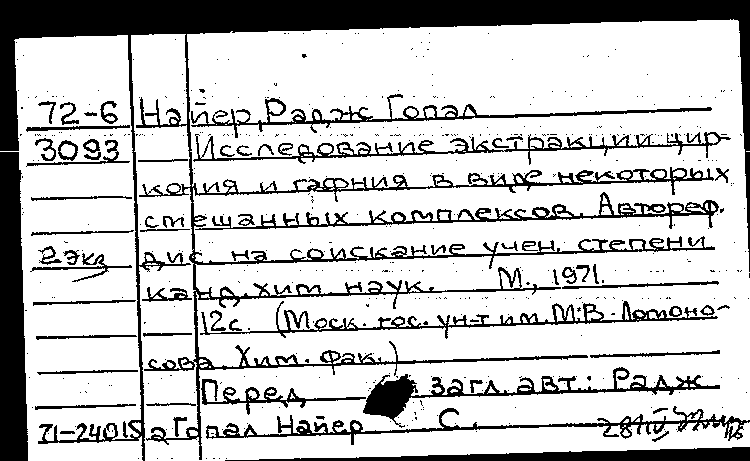 72-6 Найер, Радж Гопал
3093 Исследование экстракции цир-
кония и гафния в виде некоторых
смешанных комплексов. Автореф.
2 экз дис. на соискание учен. степени
канд. хим. наук. М., 1971.
12с. (Моск. гос. ун-т им. М.В. Ломоно-
сова. Хим. фак.)
Перед загл. авт.: Радж
71-24015 а Гопал Найер С.